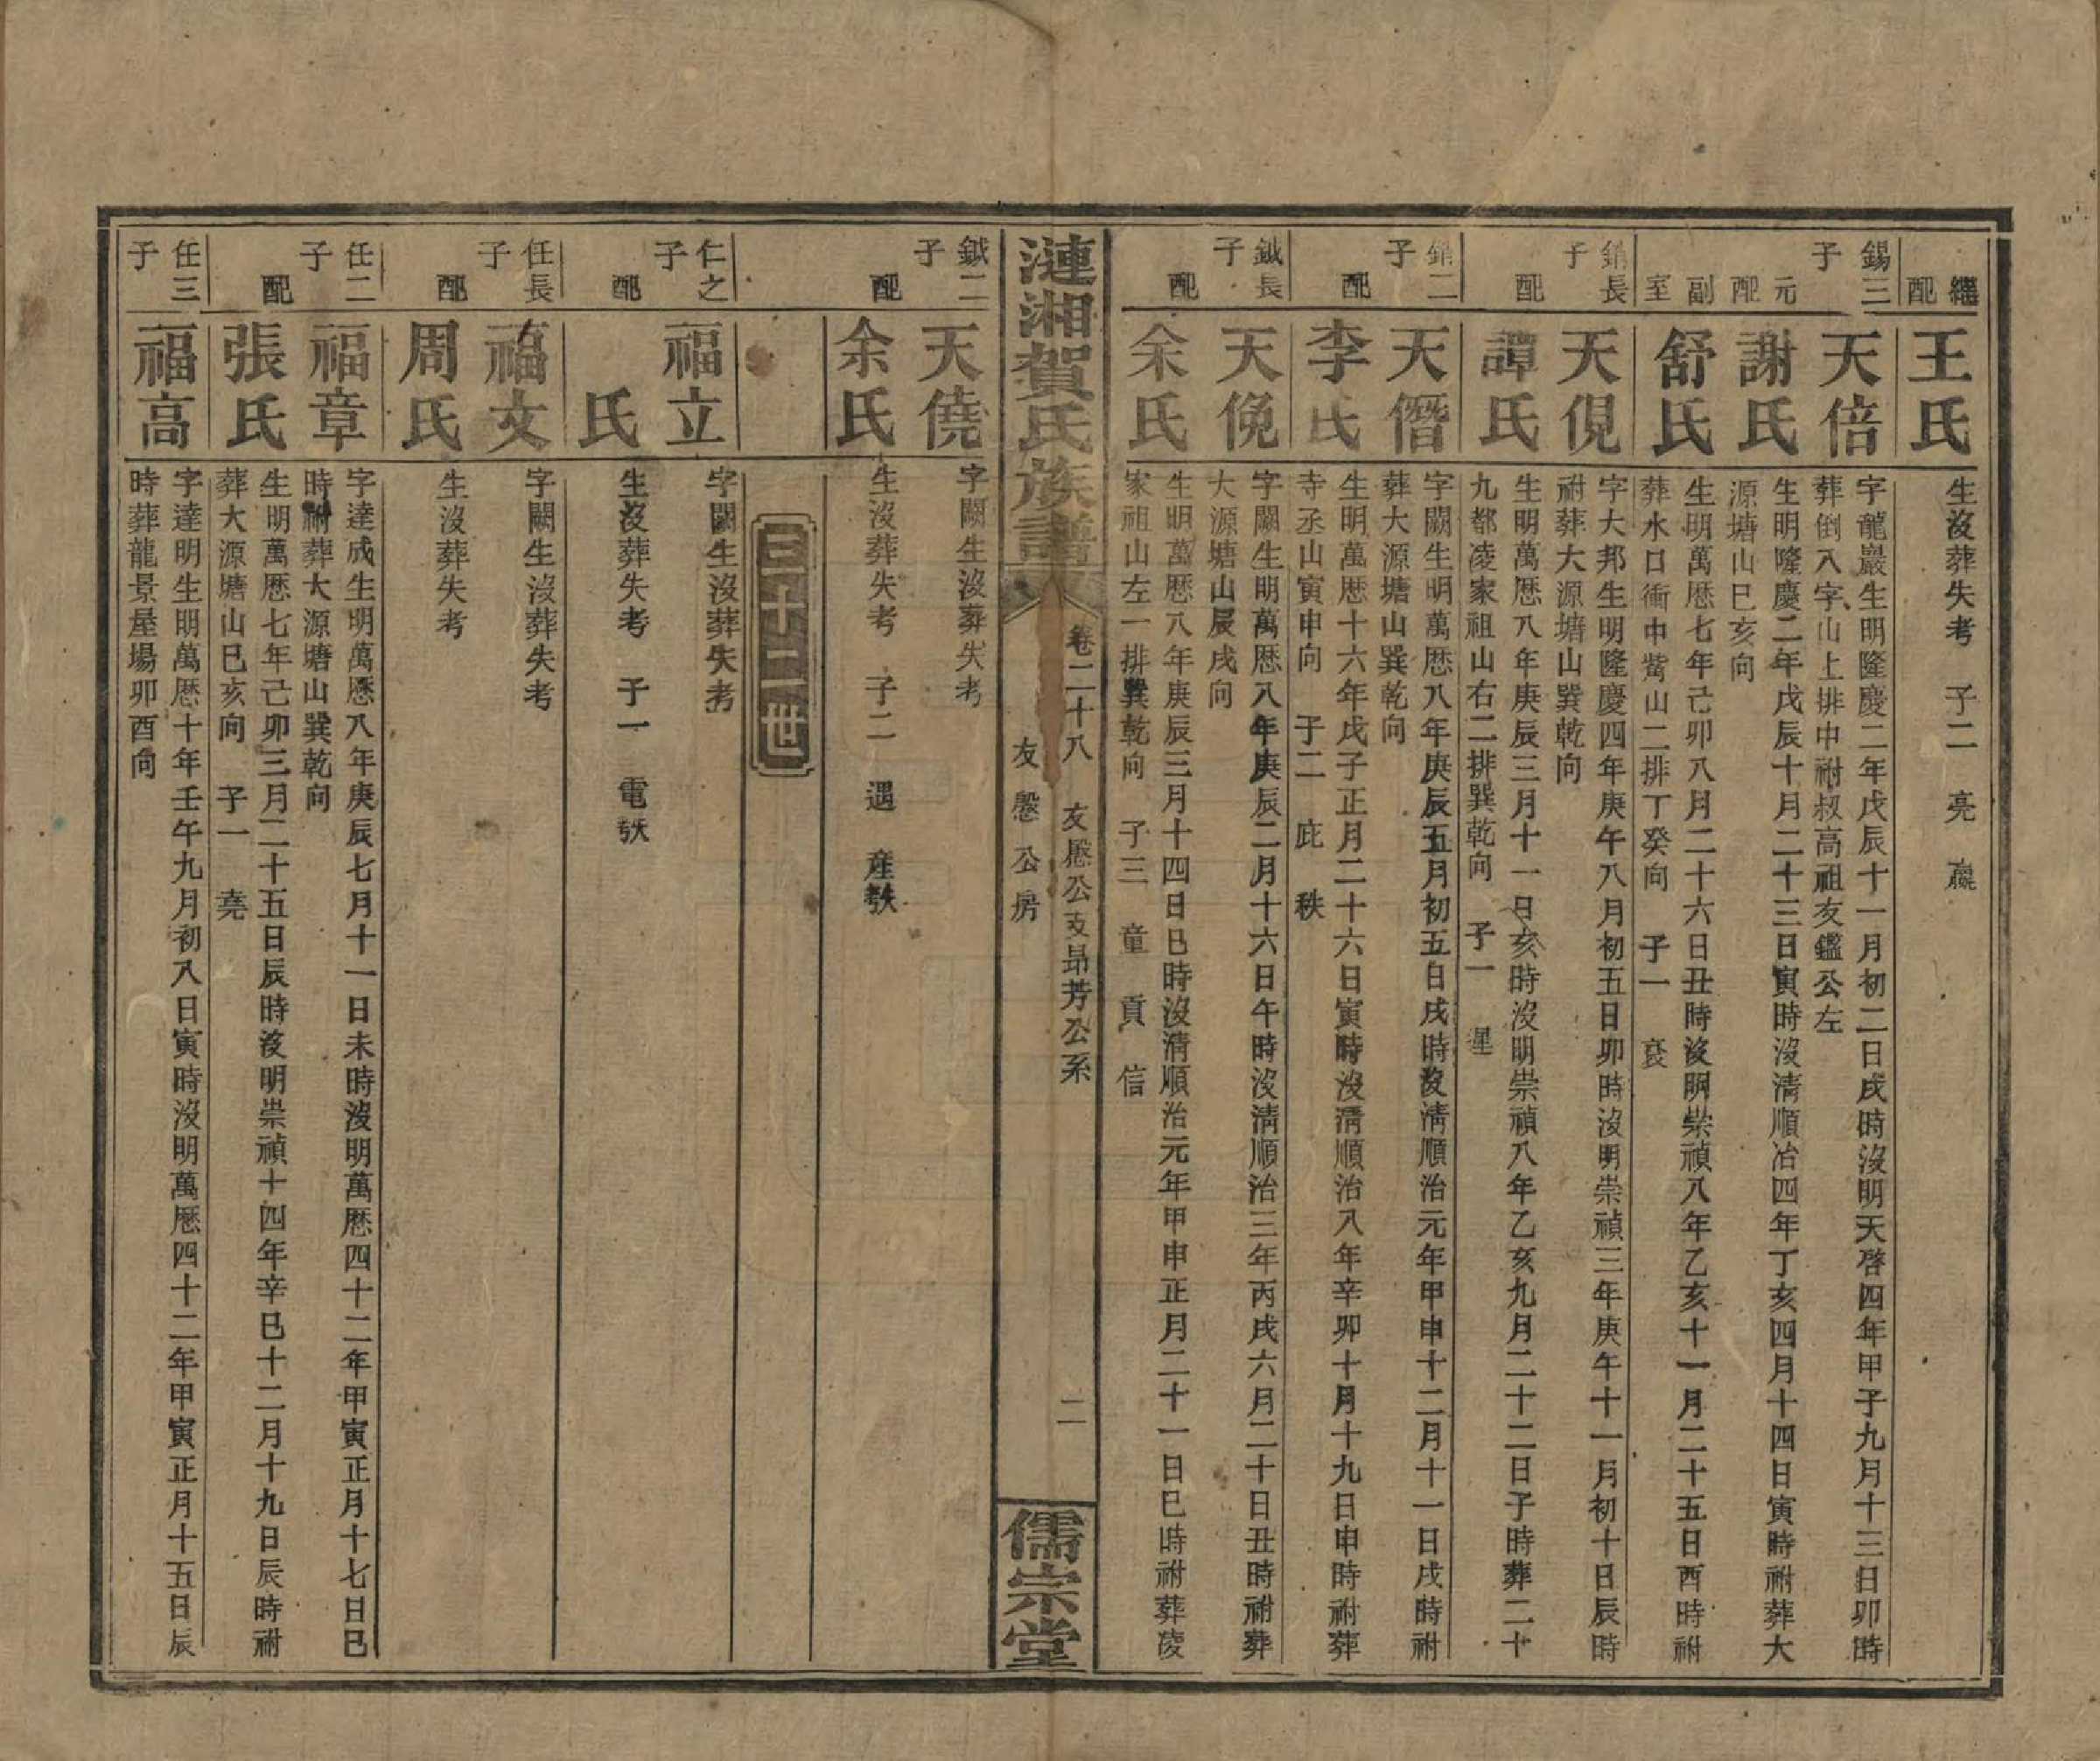 繼配
王氏
生沒葬失考　子二　亮　贏
錫三子
天倍
字龍巖生明隆慶二年戊辰十一月初二日戌時沒明天啓四年甲子九月十三日卯時
葬倒入字山上排中祔叔高祖友鑑公左
元配
謝氏
生明隆慶二年戊辰十月二十三日寅時沒清順治四年丁亥四月十四日寅時祔葬大
源塘山巳亥向
副室
舒氏
生明萬厯七年己卯八月二十六日丑時沒明崇禎八年乙亥十一月二十五日酉時祔
葬水口衝中觜山二排丁癸向　子一　袞
銷長子
天俔
字大邦生明隆慶四年庚午八月初五日卯時沒明崇禎三年庚午十一月初十日辰時
祔葬大源塘山巽乾向
配
譚氏
生明萬厯八年庚辰三月十一日亥時沒明崇禎八年乙亥九月二十二日子時葬二十
九都凌家祖山右二排巽乾向　子一　暹
銷二子
天僭
字闕生明萬厯八年庚辰五月初五日戌時沒清順治元年甲申十二月十一日戌時祔
葬大源塘山巽乾向
配
李氏
生明萬厯十六年戊子正月二十六日寅時沒清順治八年辛卯十月十九日申時祔葬
寺丞山寅申向　子二　庇　秩
鉞長子
天俛
字闕生明萬厯八年庚辰二月十六日午時沒清順治三年丙戌六月二十日丑時祔葬
大源塘山辰戌向
配
余氏
生明萬厯八年庚辰三月十四日巳時沒清順治元年甲申正月二十一日巳時祔葬淩
家祖山左一排巽乾向　子三　童　貢　信
漣湘賀氏族譜
卷二十八　友愿公支昻芳公系
友愍公房
二
儒宗堂
鉞二子
天僥
字闕生沒葬失考
配
余氏
生沒葬失考　子二　遇　產㪇
三十二世
仁之子
福立
字闕生沒葬失考
配
氏
生沒葬失考　子一　電㪇
任長子
福文
字闕生沒葬失考
配
周氏
生沒葬失考
任二子
福章
字達成生明萬厯八年庚辰七月十一日未時沒明萬厯四十二年甲寅正月十七日巳
時祔葬大源塘山巽乾向
配
張氏
生明萬厯七年己卯三月二十五日辰時沒明崇禎十四年辛巳十二月十九日辰時祔
葬大源塘山巳亥向　子一　堯
任三子
福高
字達明生明萬厯十年壬午九月初八日寅時沒明萬厯四十二年甲寅正月十五日辰
時葬龍景屋場卯酉向